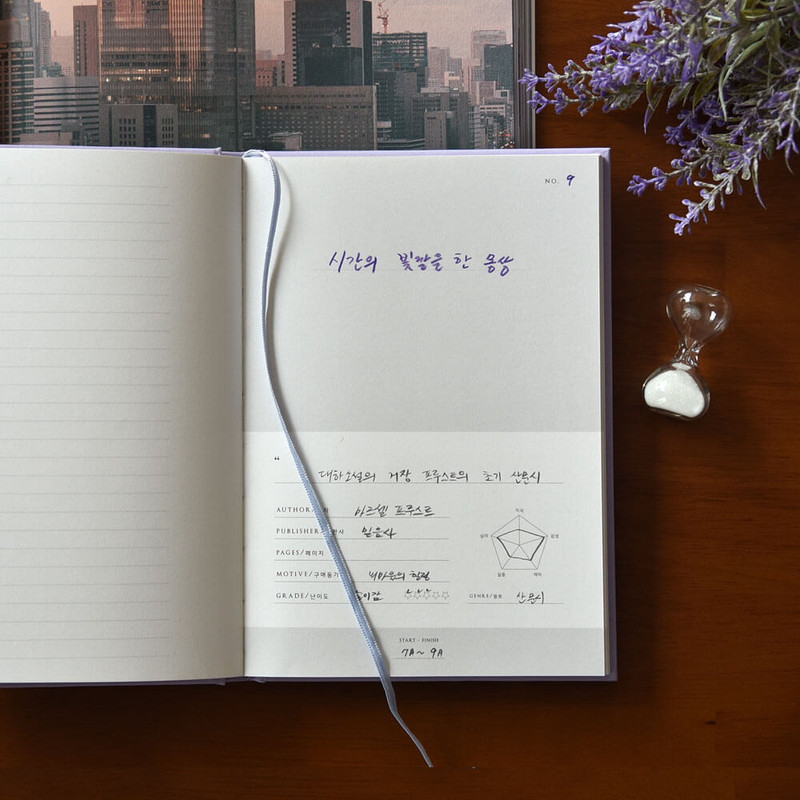 NO. 9
시간의 빛깔을 한 몽상
“
대하소설의 거장 프루스트의 초기 산문시
AUTHOR 마르셀 프루스트
PUBLISHER 믿음사
PAGES/페이지
MOTIVE/구매동기 내마음의
GRADE/난이도
GENRE/장르 산문시
START - FINISH
7A ~ 9A